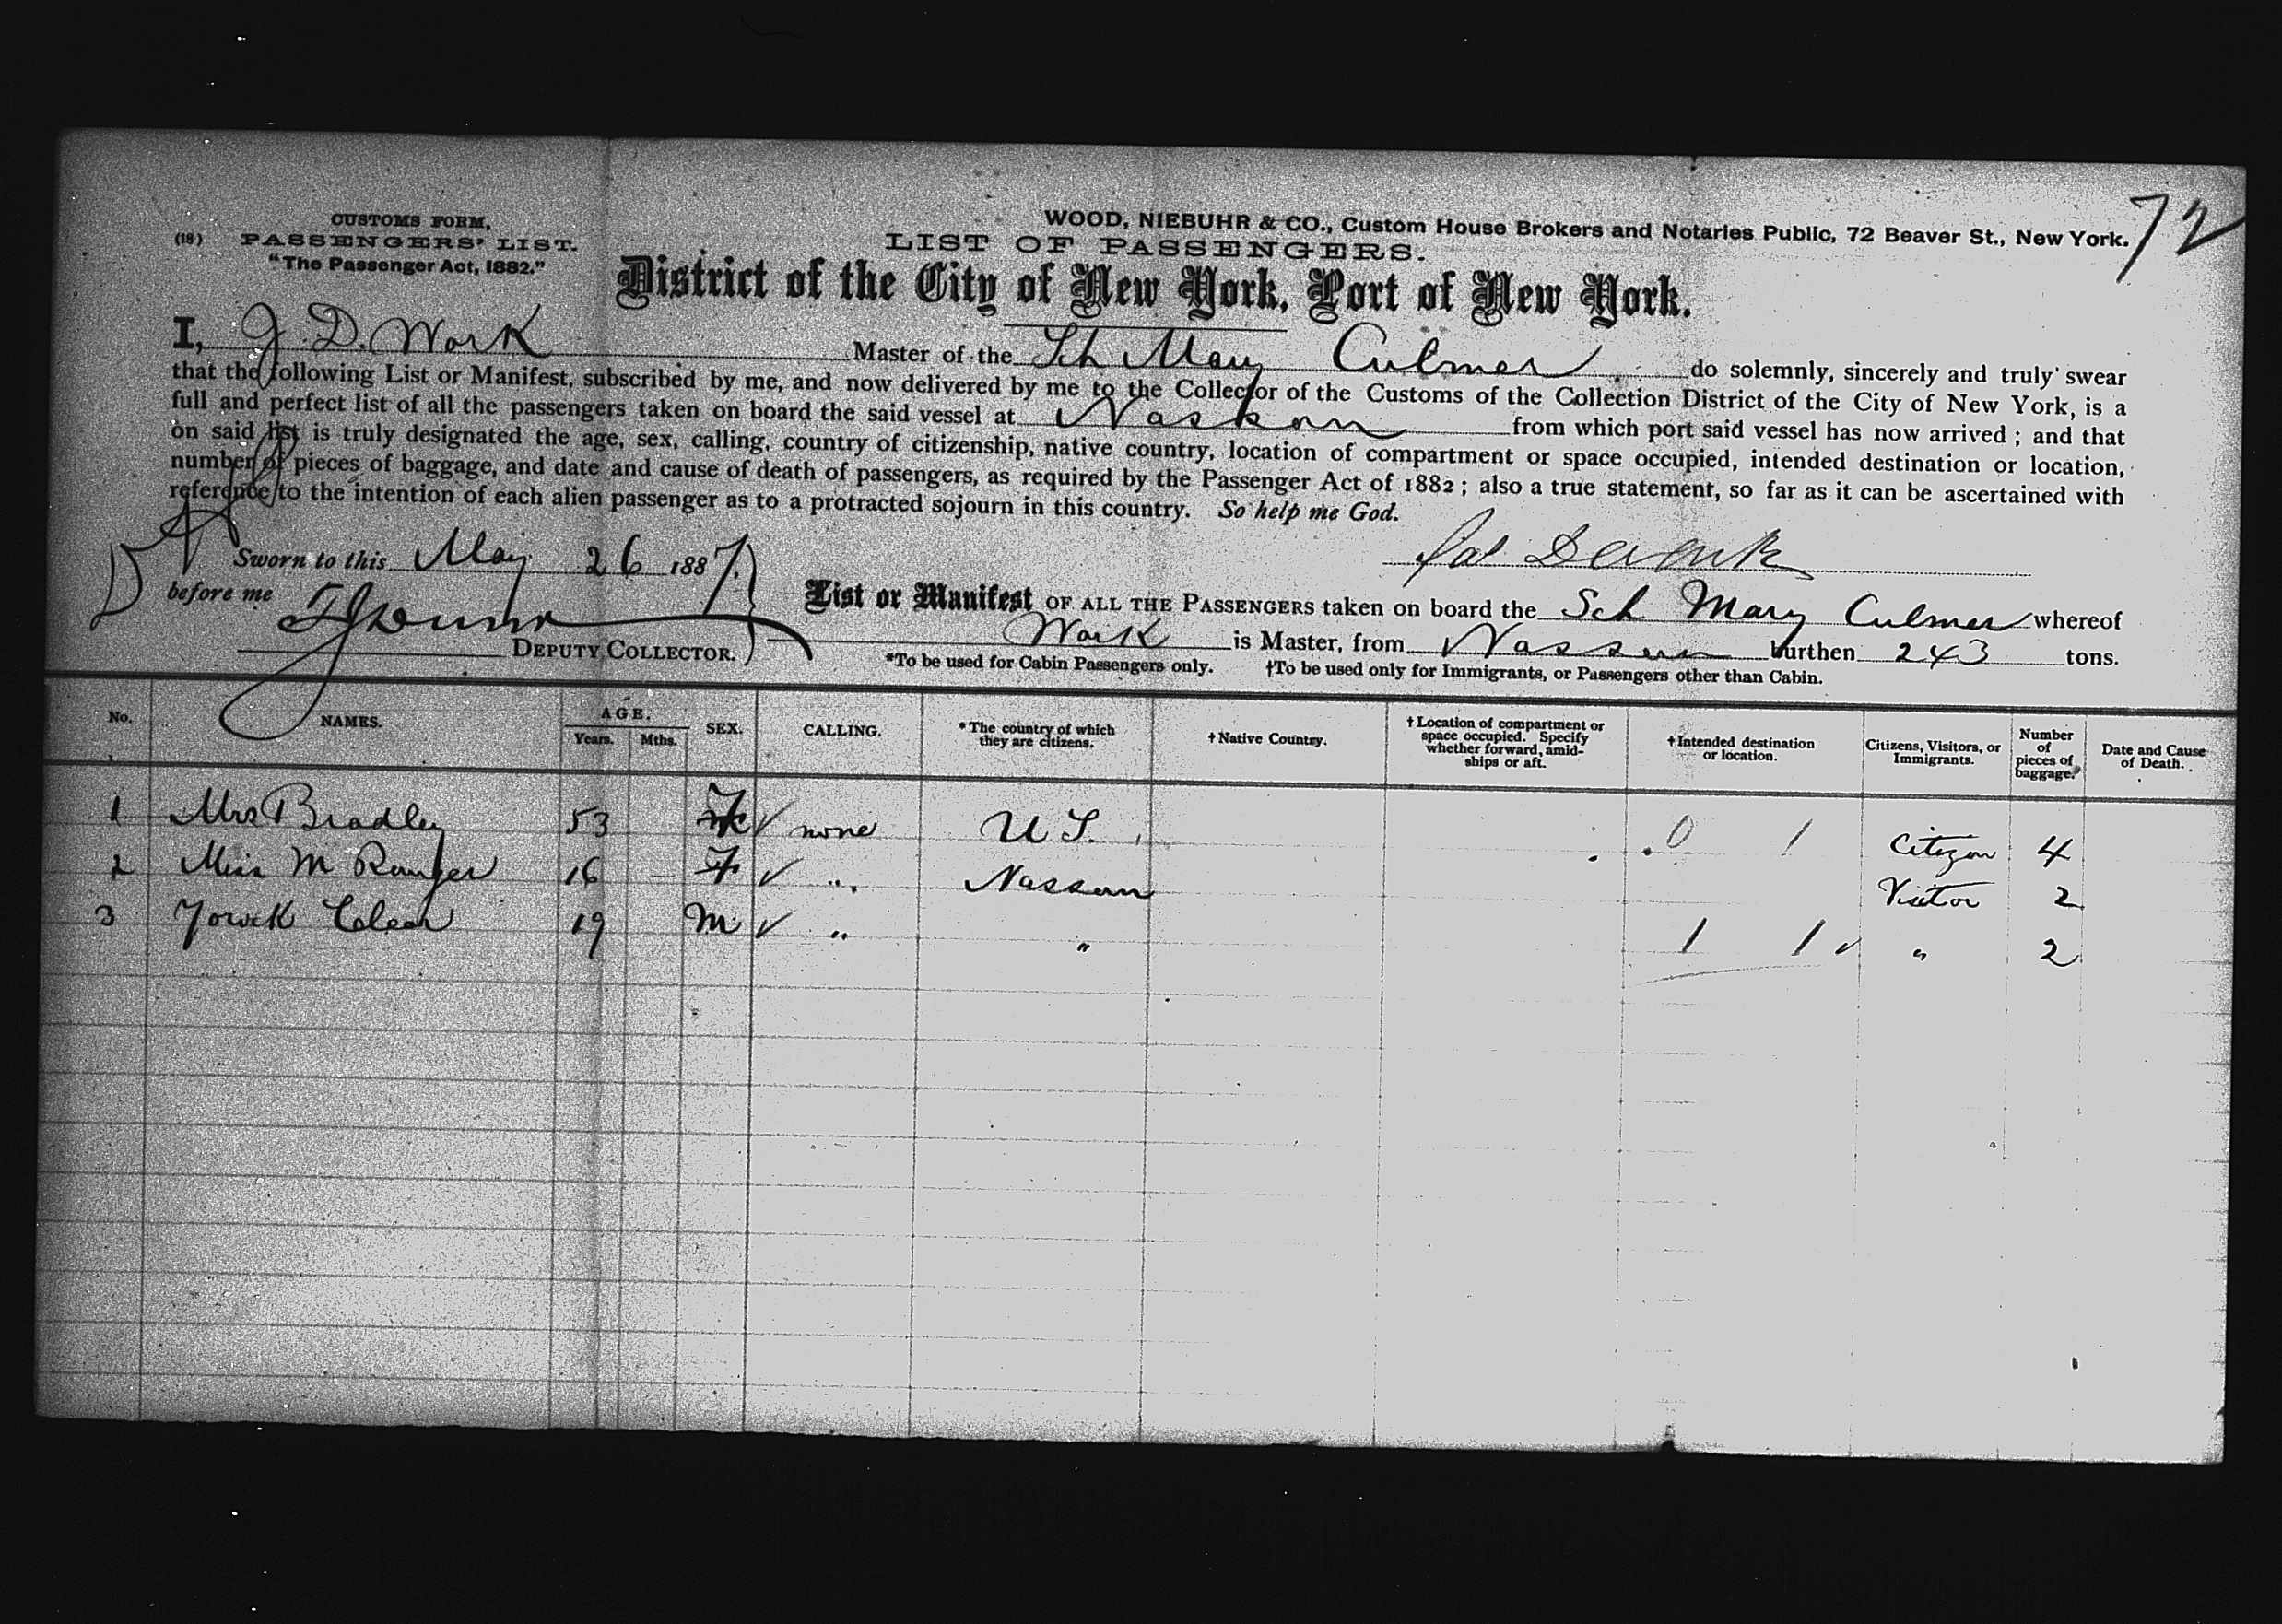 WOOD, NIEBUHR & CO., Custom House Brokers and Notaries Public, 72 Beaver St., New York.
72
CUSTOMS FORM,
(18) PASSENGERS' LIST.
"The Passenger Act, 1882."
LIST OF PASSENGERS.
District of the City of New York, Port of New York.
I, J. D. Work Master of the Sch Mary Culmer do solemnly, sincerely and truly swear
that the following List or Manifest, subscribed by me, and now delivered by me to the Collector of the Customs of the Collection District of the City of New York, is a
full and perfect list of all the passengers taken on board the said vessel at Nassau from which port said vessel has now arrived; and that
on said list is truly designated the age, sex, calling, country of citizenship, native country, location of compartment or space occupied, intended destination or location,
number of pieces of baggage, and date and cause of death of passengers, as required by the Passenger Act of 1882; also a true statement, so far as it can be ascertained with
reference to the intention of each alien passenger as to a protracted sojourn in this country. So help me God.
Sworn to this May 26 1887.
before me
DEPUTY COLLECTOR.
List or Manifest OF ALL THE PASSENGERS taken on board the Sch Mary Culmer whereof
Work is Master, from Nassau burthen 243 tons.
*To be used for Cabin Passengers only. †To be used only for Immigrants, or Passengers other than Cabin.
No. NAMES. AGE. Years. Mths. SEX. CALLING. *The country of which they are citizens. †Native Country. †Location of compartment or space occupied. Specify whether forward, amidships or aft. †Intended destination or location. Citizens, Visitors, or Immigrants. Number of pieces of baggage. Date and Cause of Death.
1 Mrs Bradley 53 F ✓ none U S. 0 1 Citizen 4
2 Miss M 16 F ✓ " Nassau Visitor 2
3 19 M ✓ " " 1 1 ✓ " 2